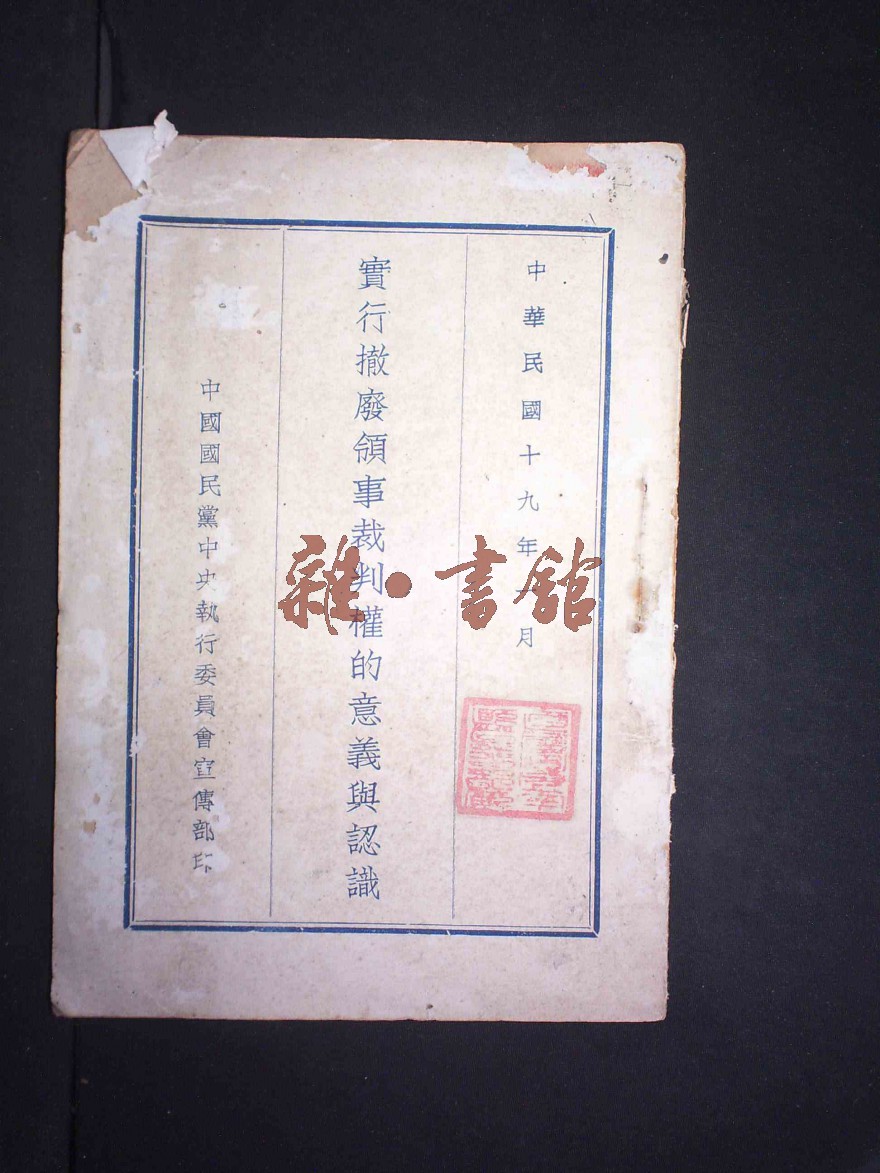 中華民國十九年一月
實行撤廢領事裁判權的意義與認識
中國國民黨中央執行委員會宣傳部印
雜·書館